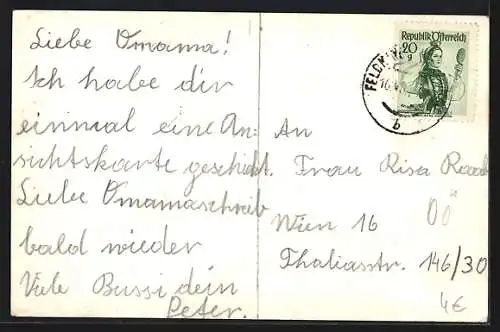 Liebe Omama!
Ich habe dir
einmal eine An=
sichtskarte geschickt.
Liebe Omamaschreib
bald wieder
Viele Bussi dein
Peter.
Republik Österreich
20
g
FELDK
16.VII
b
An
Frau Risa
Wien 16
Thaliastr. 146/30
OÖ
4€